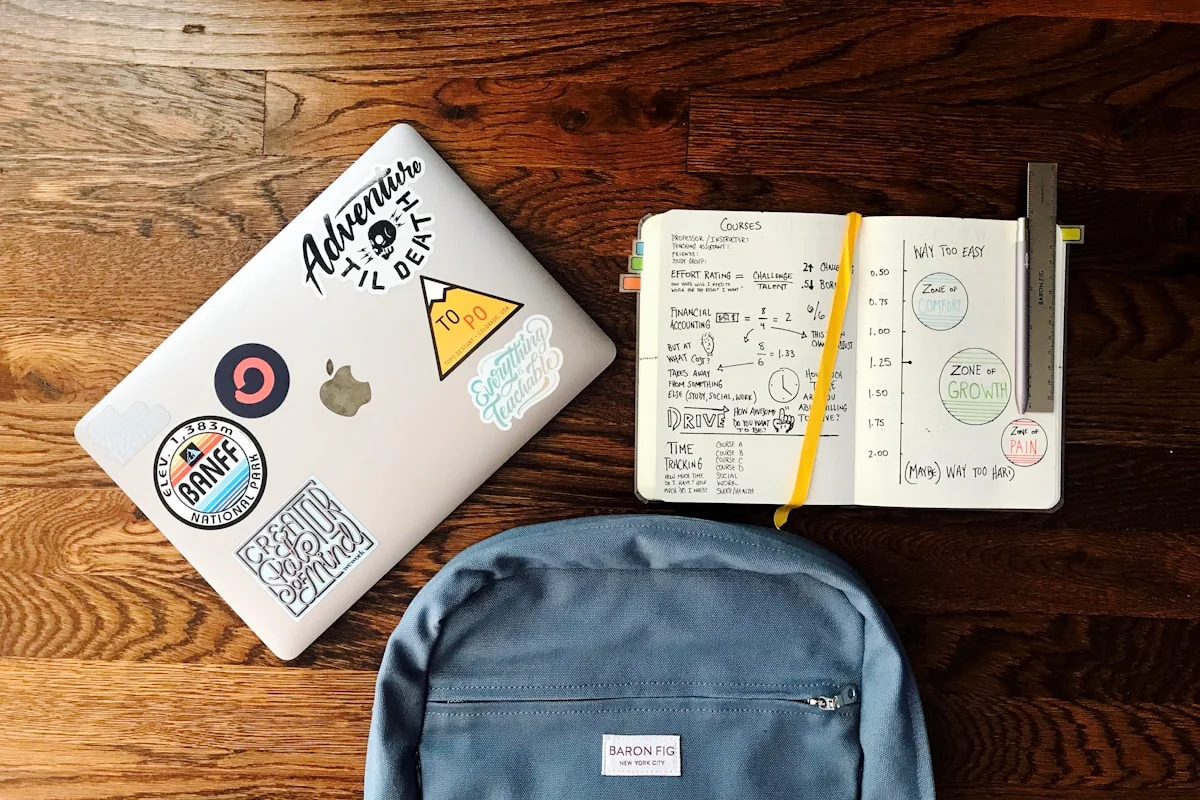 Adventure
'TIL DEATH
TO PO
TOPO DESIGNS, COLORADO, USA
Everything
Teachable
ELEV. 1,383m
BANFF
NATIONAL PARK
CREATOR
State
of Mind
COURSES
PROFESSOR / INSTRUCTOR:
TEACHING ASSISTANT:
FRIENDS:
STUDY GROUP:
EFFORT RATING = CHALLENGE
TALENT
HOW HARD WILL I NEED TO
WORK FOR THE RESULT I WANT?
2↑
.5↓
FINANCIAL
ACCOUNTING
= 8/4 = 2
6/6
BUT AT
WHAT COST?
8/6 = 1.33
THIS
TAKES AWAY
FROM SOMETHING
ELSE (STUDY, SOCIAL, WORK)
DRIVE
HOW AWESOME
DO YOU WANT
TO BE?
TIME
TRACKING
HOW MUCH TIME
DO I HAVE? HOW
MUCH DO I NEED?
COURSE A
COURSE B
COURSE C
COURSE D
SOCIAL
WORK
SLEEP/HEALTH
WAY TOO EASY
0.50
0.75
1.00
1.25
1.50
1.75
2.00
ZONE OF
COMFORT
ZONE OF
GROWTH
ZONE OF
PAIN
(MAYBE) WAY TOO HARD
BARON FIG
BARON FIG
NEW YORK CITY